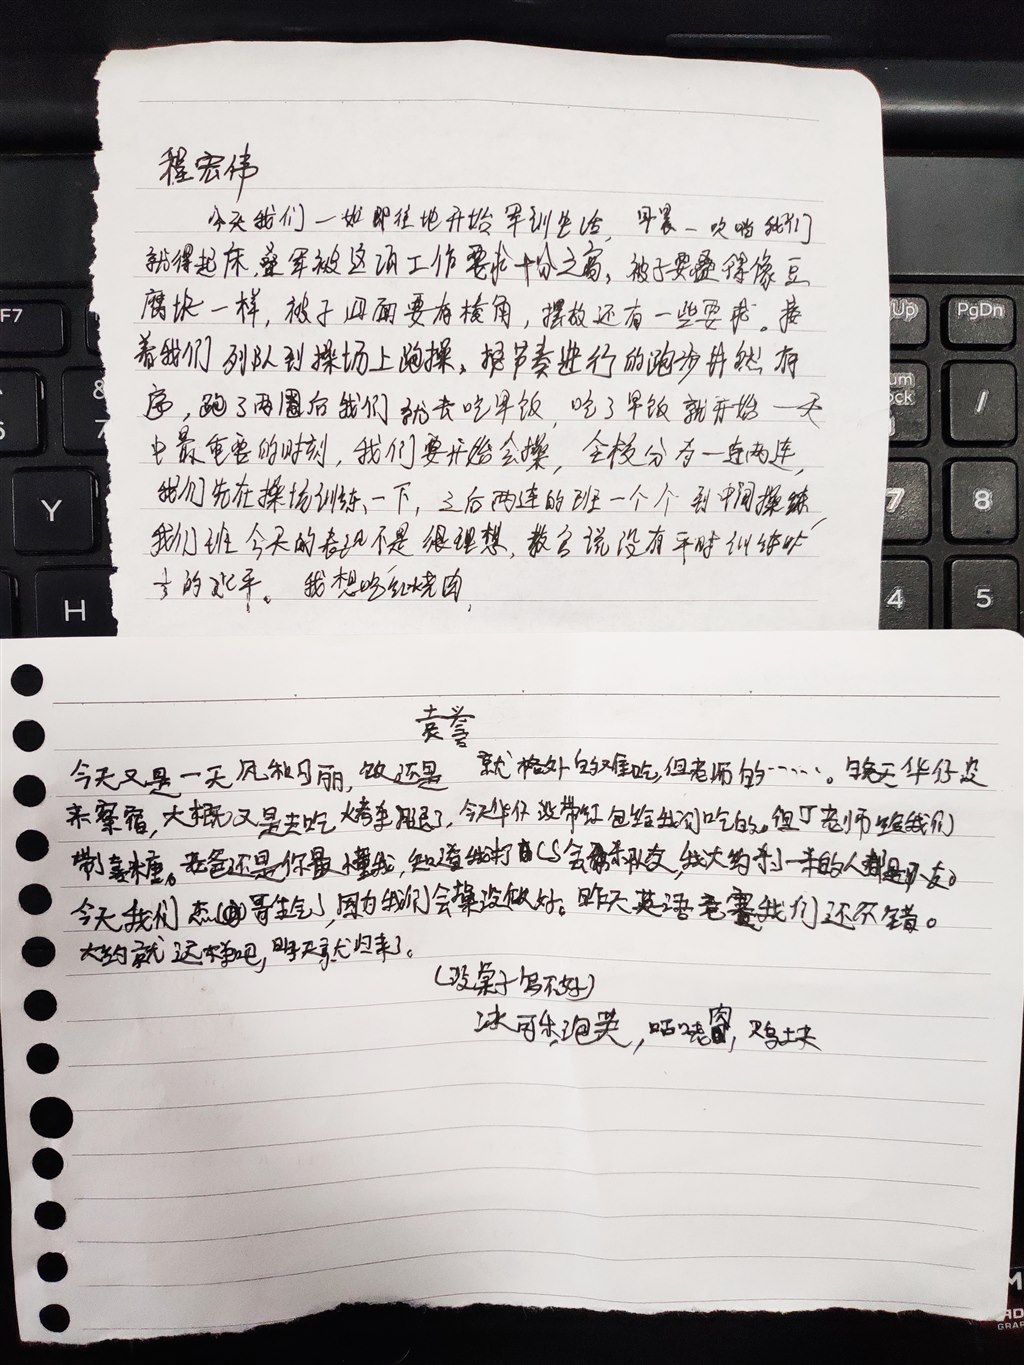 程宏伟
今天我们一如即往地开始军训生活,早晨一吹哨我们
就得起床,叠军被这项工作要求十分之高,被子要叠得像豆
腐块一样,被子四面要有棱角,摆放还有一些要求。接
着我们列队到操场上跑操,按节奏进行的跑步井然有
序,跑了两圈后我们就去吃早饭,吃了早饭就开始一天
中最重要的时刻,我们要开始会操,全校分为一连两连,
我们先在操场训练一下,之后两连的班一个个到中间操练,
我们班今天的表现不是很理想,教官说没有平时训练时
的水平。我想吃红烧肉,
袁誉
今天又是一天风和日丽,饭还是 就格外的难吃,但老师的……。昨天华仔没
来察宿,大概又是去吃烤串 了,今天华仔没带红包给我们吃的。但丁老师给我们
带了姜糖。老爸还是你最懂我,知道我打 CS会 队友,我大约杀 来的人都是队友。
今天我们杰 哥生气了,因为我们会操没做好。昨天英语竞赛我们还不错。
大约就这样吧,明天就归来了。
(没桌子写不好)
冰可乐,泡芙,咕咾肉,鸡块
F7
Up
PgDn
Num
Lock
/
8
7
6
7
Y
7
8
H
4
5